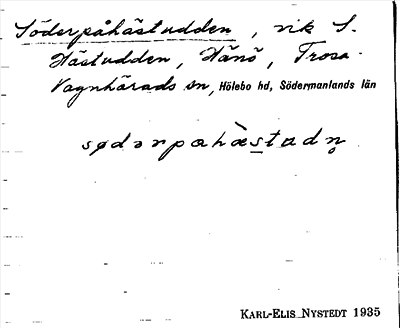 Söderpåhästudden, vik S.
Hästudden, Hånö, Trosa-
Vagnhärads sn, Hölebo hd, Södermanlands län
sødərpɑhæstɑdn̥
KARL-ELIS NYSTEDT 1935